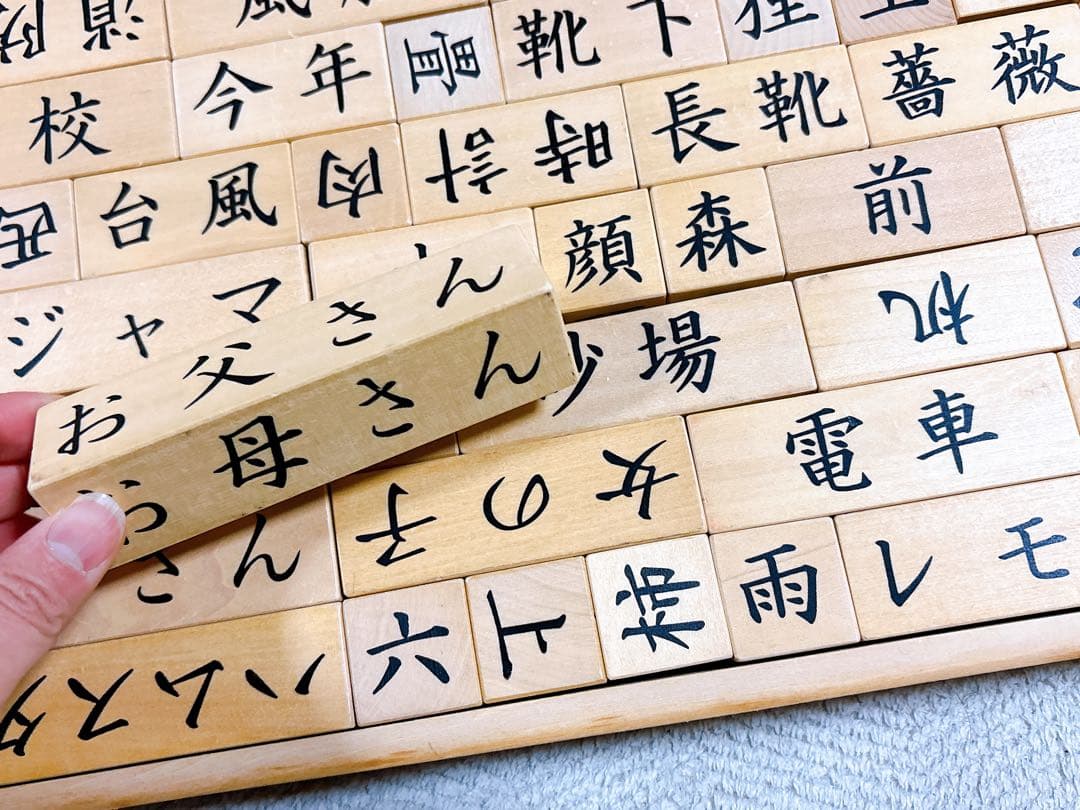 今年
胃
靴下
校
時計
長靴
薔薇
台風
肉
顔
森
前
ジャマ
机
お父さん
お母さん
場
電車
女の子
さん
六
上
柿
雨
レモ
ハムスタ